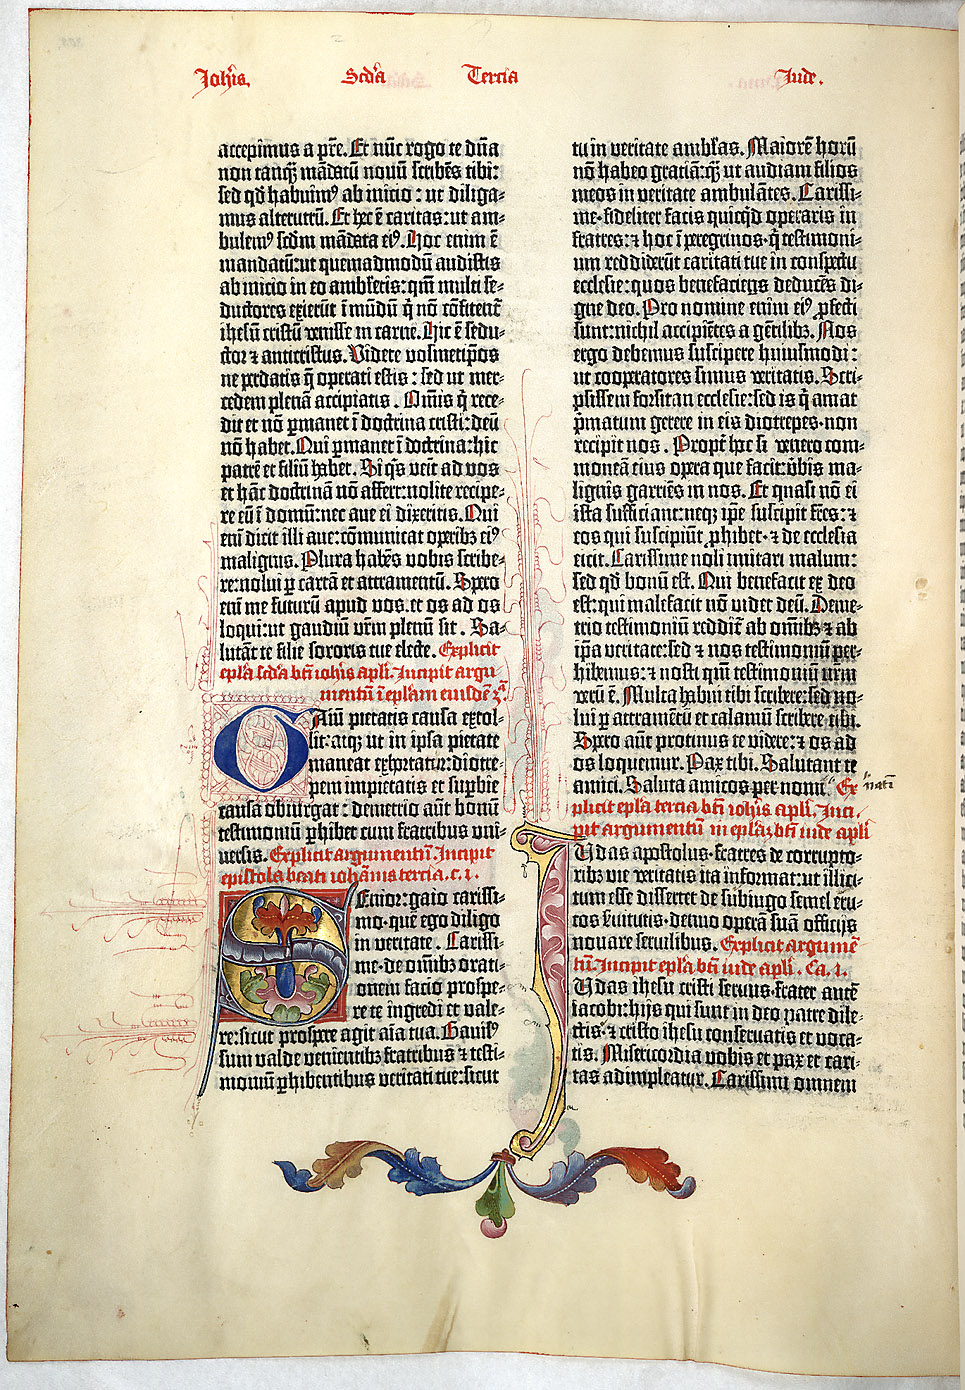 Joh̃is.
Scd̃a
Tercia
Jude.
accepimus a pr̃e. Et nũc rogo te dña
non tanq̃ᷓ mãdatũ nouũ scribẽs tibi:
sed qd̃ habuim⁹ ab inicio : ut diliga-
mus alterutrũ. Et hec ẽ caritas: ut am-
bulem⁹ scd̃m mãdata ei⁹. Hoc enim ẽ
mandatũ: ut quemadmodũ audistis
ab inicio in eo ambl̃etis: qm̃ multi se-
ductores exierũt ĩ mũdũ q̃ nõ cõfitent̃
ihesũ cristũ venisse in carne. Hic ẽ sedu-
ctor ⁊ anticristus. Videte vosmetip̃os
ne ꝑdatis q̃ operati estis : sed ut mer-
cedem plenã accipiatis . Om̃is q̃ rece-
dit et nõ ꝑmanet ĩ doctrina cristi: deũ
nõ habet. Qui ꝑmanet ĩ doctrina: hic
patrẽ et filiũ habet. Si q̃s veit ad vos
et hãc doctrinã nõ affert: nolite recipe-
re eũ ĩ domũ: nec aue ei dixeritis. Qui
em̃ dicit illi aue: cõmunicat operibꝫ ei⁹
malignis. Plura habẽs vobis scribe-
re: nolui ꝑ cartã et atramentũ. Spero
em̃ me futurũ apud vos. et os ad os
loqui: ut gaudiũ vr̃m plenũ sit . Sa-
lutãt te filie sororis tue electe. Explicit
epl̃a scd̃a bt̃i ioh̃is apl̃i. Incipit argu-
mentũ ĩ epl̃am eiusdẽ .3.ã
GAiũ pietatis causa extol-
lit: atqꝫ ut in ipsa pietate
maneat exhortatur: diotre-
pem impietatis et suꝑbie
causa obiurgat : demetrio aũt bonũ
testimoniũ ꝑhibet cum fratribus vni-
uersis. Explicit argumentũ. Incipit
epistola beati iohãnis tercia. c. i.
SEnior: gaio carissi-
mo. quẽ ego diligo
in veritate . Carissi-
me. de om̃ibꝫ orati-
onem facio prospe-
re te ingredi et vale-
re: sicut prospere agit aĩa tua. Gauis⁹
sum valde veniẽtibꝫ fratribus ⁊ testi-
moniũ ꝑhibentibus veritati tue: sicut
tu in veritate ambl̃as. Maiorẽ horũ
nõ habeo gratiã: q̃ᷓ ut audiam filios
meos in veritate ambulãtes. Carissi-
me. fideliter facis quicq̃d operaris in
fratres: ⁊ hoc ĩ peregrinos. q̃ testimoni-
um reddiderũt caritati tue in conspectu
ecclesie: quos benefaciens deduces di-
gne deo. Pro nomine enim ei⁹ ꝓfecti
sunt: nichil accipiẽtes a gẽtilibꝫ. Nos
ergo debemus suscipere huiusmodi :
ut cooperatores simus veritatis. Scri-
psissem forsitan ecclesie: sed is q̃ amat
p̃matum gerere in eis diotrepes. non
recipit nos . Propt̃ hoc si venero com-
moneã eius opera que facit: v̾bis ma-
lignis garriẽs in nos. Et quasi nõ ei
ista sufficiant: neqꝫ ip̃e suscipit fr̃es: ⁊
eos qui suscipiũt ꝓhibet. ⁊ de ecclesia
eicit. Carissime noli imitari malum:
sed qd̃ bonũ est. Qui benefacit ex deo
est: qui malefacit nõ videt deũ. Deme-
trio testimoniũ reddit̃ ab om̃ibꝫ ⁊ ab
ip̃a veritate: sed ⁊ nos testimoniũ ꝑ-
hibemus: ⁊ nosti qm̃ testimoniũ nr̃m
verũ ẽ. Multa habui tibi scribere: sed no-
lui ꝑ atramẽtũ et calamũ scribere tibi.
Spero aũt protinus te videre: ⁊ os ad
os loquemur. Pax tibi. Salutant te
amici. Saluta amicos per nomi〃 Ex
〃natĩ
plicit epl̃a tercia bt̃i ioh̃is apl̃i. Inci.
pit argumentũ in epl̃aꝫ bt̃i iude apl̃i
IUdas apostolus. fratres de corrupto-
ribꝫ vie veritatis ita informat: ut illici-
tum esse disseret de subiugo semel ere-
ctos s̾uitutis. denuo operã suã officijs
nouare seruilibus. Explicit argumẽ
tũ. Incipit epl̃a bt̃i iude apl̃i . Ca. i.
IUdas ihesu cristi seruus. frater autẽ
iacobi: hijs qui sunt in deo patre dile-
ctis: ⁊ cristo ihesu conseruatis et voca-
tis. Misericordia vobis et pax et cari-
tas adimpleatur. Carissimi omnem